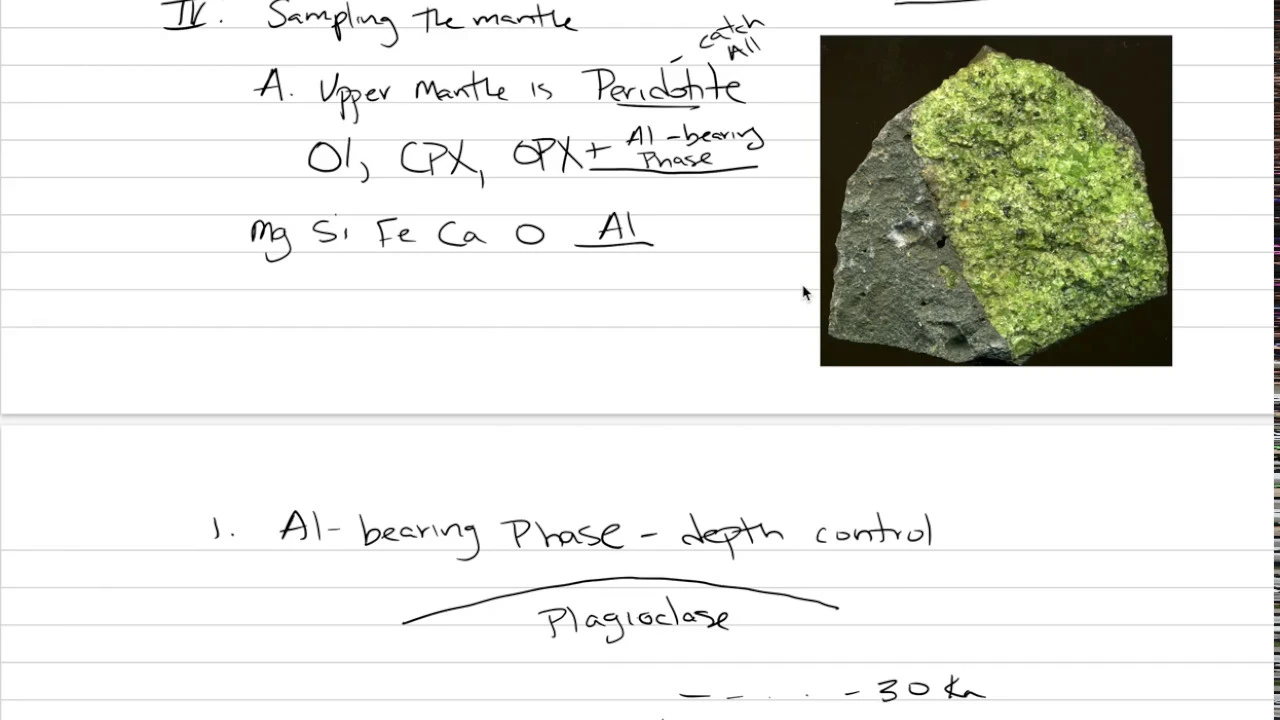 IV. Sampling the mantle
- catch All
A. Upper mantle is Peridotite
Ol, CPX, OPX + Al-bearing Phase
Mg Si Fe Ca O Al
1. Al-bearing Phase - depth control
Plagioclase
- - . . . - 30 Km